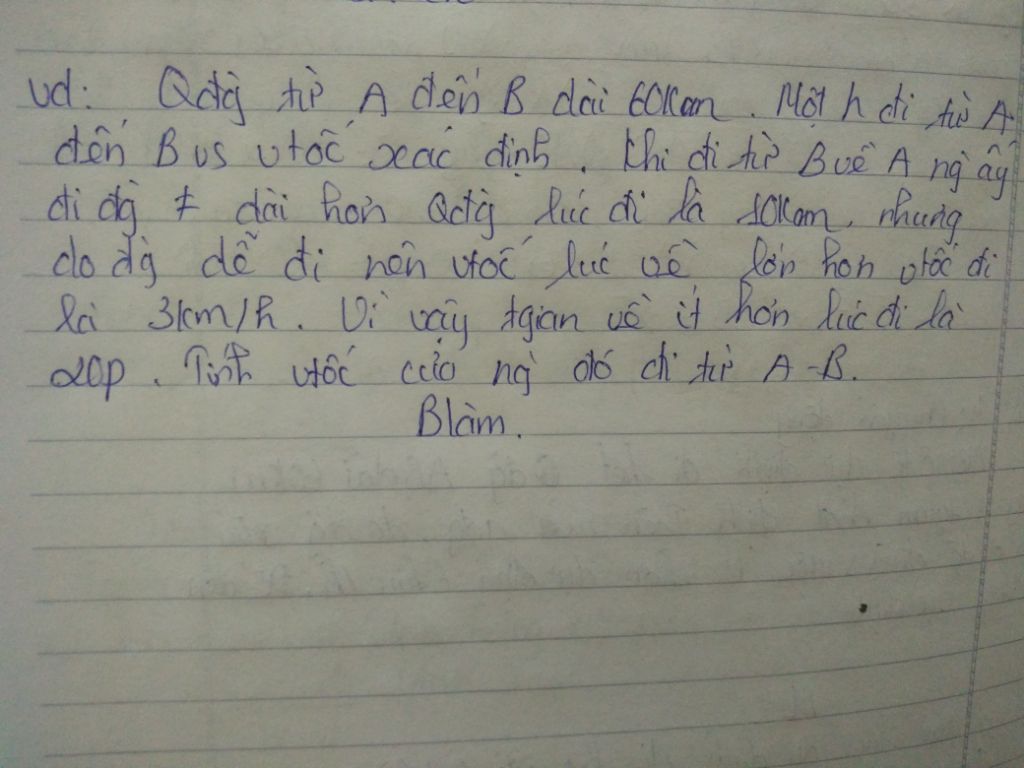 Vd: Qđg từ A đến B dài 60km. Một h đi từ A
đến B vs vtốc xác định. Khi đi từ B về A ng ấy
đi đg ≠ dài hơn Qđg lúc đi là 10km, nhưng
do đg dễ đi nên vtốc lúc về lớn hơn vtốc đi
là 3km/h. Vì vậy tgian về ít hơn lúc đi là
20p. Tính vtốc của ng đó đi từ A-B.
Blàm.